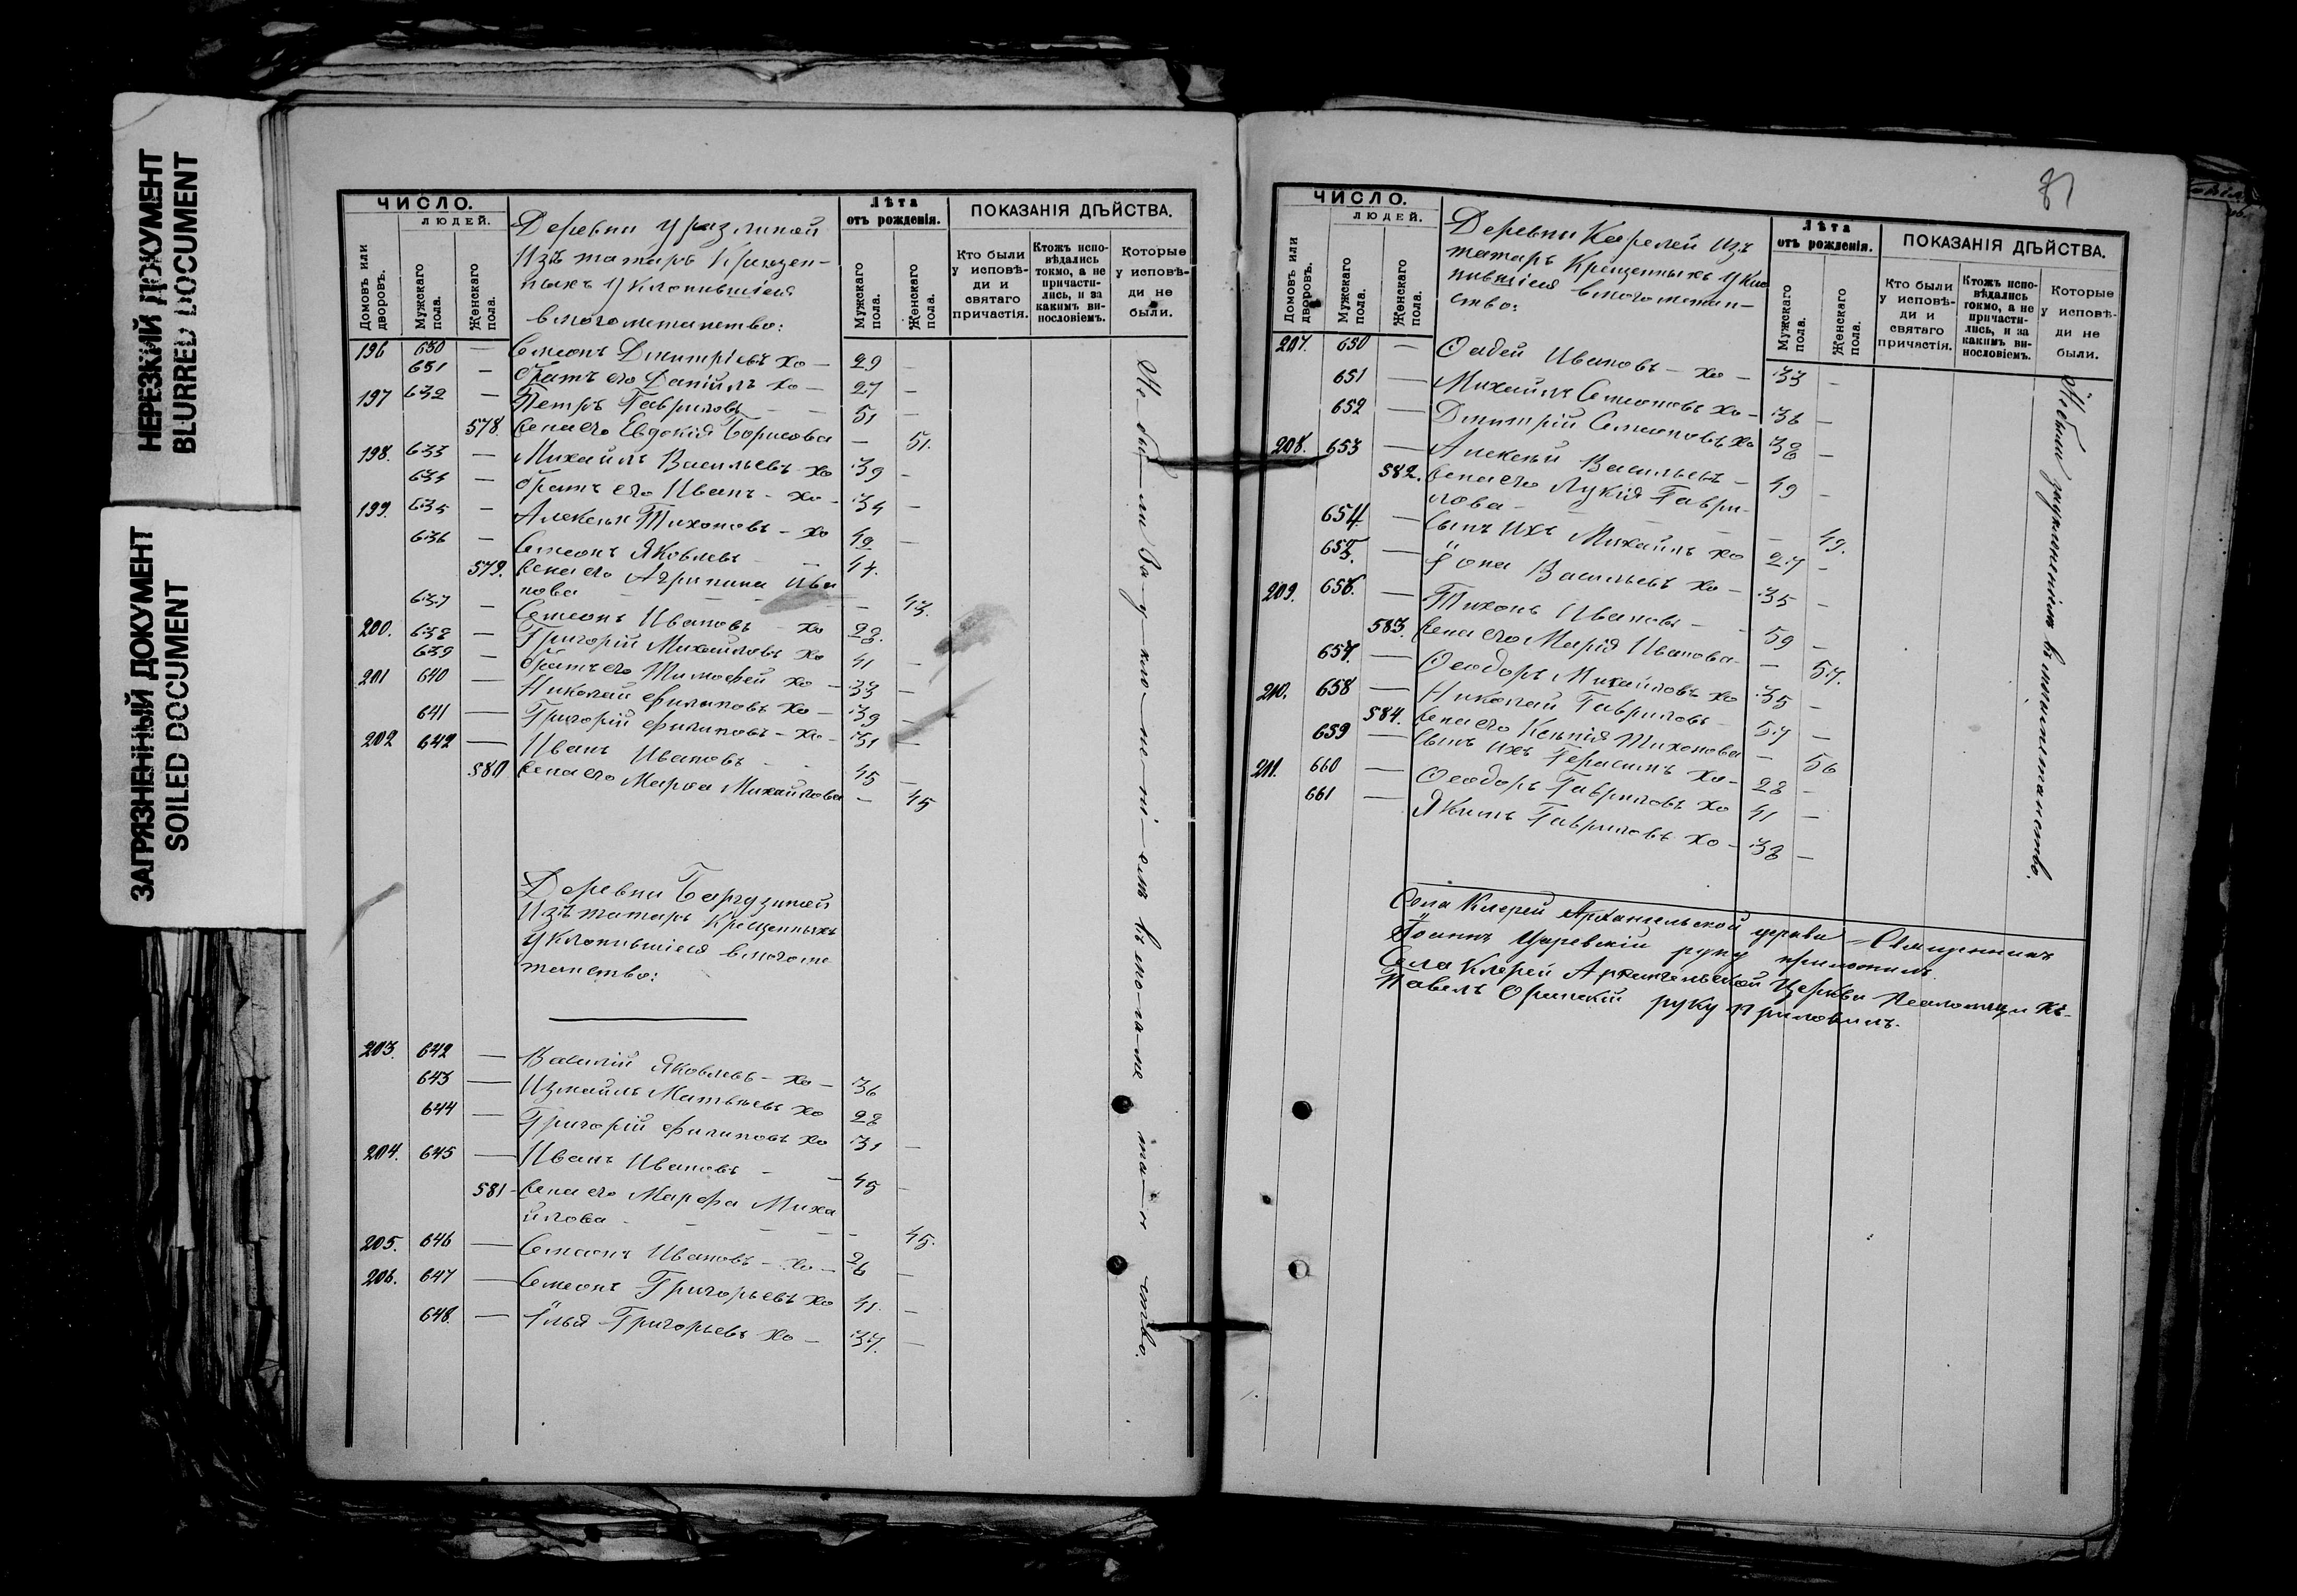 НЕРЕЗКИЙ ДОКУМЕНТ
BLURRED DOCUMENT
ЗАГРЯЗНЕННЫЙ ДОКУМЕНТ
SOILED DOCUMENT
ЧИСЛО.
ЛЮДЕЙ.
Домовъ или дворовъ.
Мужскаго пола.
Женскаго пола.
Деревни
Изъ татаръ Крещен-
ныхъ Уклонившіеся
в могометанство:
Лѣта отъ рожденія.
Мужскаго пола.
Женскаго пола.
ПОКАЗАНІЯ ДѢЙСТВА.
Кто были у исповѣди и святаго причастія.
Ктожъ исповѣдались токмо, а не причастились, и за какимъ винословіемъ.
Которые у исповѣди не были.
196 630 — Семеонъ Димитріевъ хо — 29 —
631 — братъ его Даніилъ хо — 27 —
197 632 — Петръ Гавриловъ — — 51 —
578. жена его Евдокія Борисова — 51.
198. 633 — Михаилъ Васильевъ хо 39 —
634 — братъ его Иванъ — хо — 34 —
199. 635 — Алексѣй Тихоновъ — хо 42 —
636 — Семеонъ Яковлевъ — 44.
579. жена его Агрипина Ива
нова — — — — 43.
637 — Семеонъ Ивановъ — хо 28.
200. 638 — Григорій Михайловъ хо 41 —
639 — братъ его Тимофей хо — 33 —
201 640 — Николай Филиповъ хо — 39 —
641 — Григорій Филиповъ — хо — 31 —
202 642 — Иванъ Ивановъ — 45 —
580 жена его Марфа Михайлова — 45
Деревни
Изъ татаръ Крещенныхъ
Уклонившіеся в могоме
танство:
203. 642 — Василій Яковлевъ — хо — 36
643 — Измаилъ Матвѣевъ хо 28
644 — Григорій Филиповъ хо 31 —
204. 645 — Иванъ Ивановъ — — 45 —
581 — жена его Марфа Миха
йлова — — — — 45.
205. 646 — Семеонъ Ивановъ — хо — 26 —
206. 647 — Семеонъ Григорьевъ хо 41. —
648 — Илья Григорьевъ хо — 37. —
Не были За уклоненіемъ въ могаме тан ство.
81
ЧИСЛО.
ЛЮДЕЙ.
Домовъ или дворовъ.
Мужскаго пола.
Женскаго пола.
Деревни Карелей Изъ
татаръ Крещенныхъ Укло
нившіеся в могометан—
ство:
Лѣта отъ рожденія.
Мужскаго пола.
Женскаго пола.
ПОКАЗАНІЯ ДѢЙСТВА.
Кто были у исповѣди и святаго причастія.
Ктожъ исповѣдались токмо, а не причастились, и за какимъ винословіемъ.
Которые у исповѣди не были.
207. 650 — Фадей Ивановъ — хо — 33 —
651 — Михаилъ Семеоновъ хо — 36 —
652 — Димитрій Семеоновъ хо 38 —
208. 653 — Алексѣй Васильевъ — 49 —
582. жена его Лукія Гаври-
лова — — — — 49.
654 — Сынъ Ихъ Михаилъ хо 27 —
655. — Іона Васильевъ хо — 35 —
209. 656. — Тихонъ Ивановъ — — 59 —
583. жена его Марія Иванова — — 57.
657. — Феодоръ Михайловъ хо 35 —
210. 658 — Николай Гавриловъ — 57 —
584. жена его Ксенія Тихонова — 56
659 — Сынъ ихъ Герасимъ хо — 28 —
211. 660 — Феодоръ Гавриловъ хо 41 —
661 — Якимъ Гавриловъ хо — 38 —
Не были за уклоненіемъ въ могометанство.
Села Клерей Архангельской церкви — Священникъ
Іоаннъ Царевскій руку приложилъ.
Села Клерей Архангельской Церкви Псаломщикъ-
Павелъ руку приложилъ.